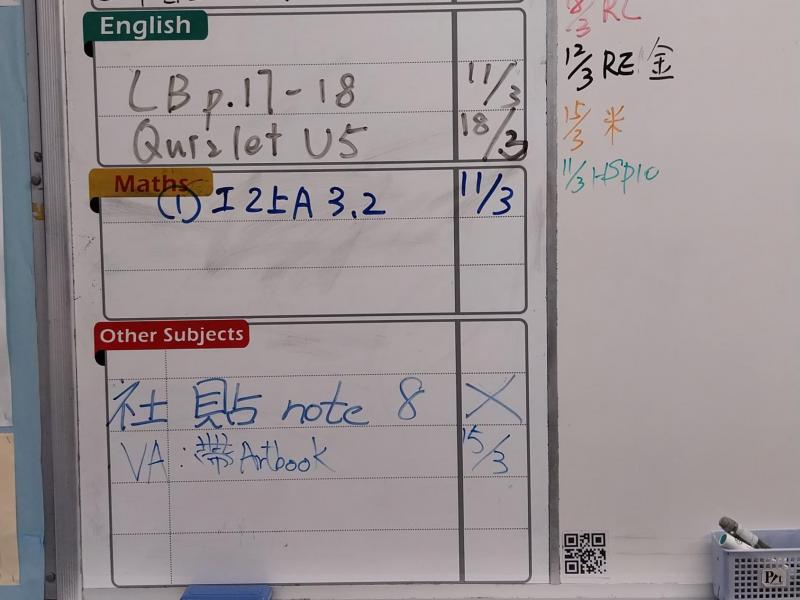 English
LB p.17-18 11/3
Quizlet U5 18/3
Maths
① 工25上A 3.2 11/3
Other Subjects
社 貼 note 8 X
VA: 帶Artbook 15/3
8/3 RC
12/3 RE 金
15/3 米
11/3 HSp10